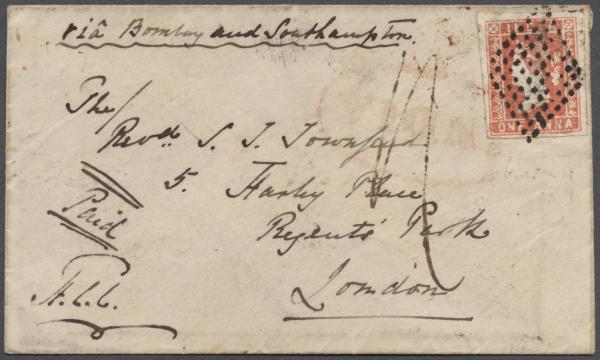 viâ Bombay and Southampton.
INDIA
ONE ANNA
The
Revd. S. T. Townsend
5. Harley Place
Regents' Park
London
Paid